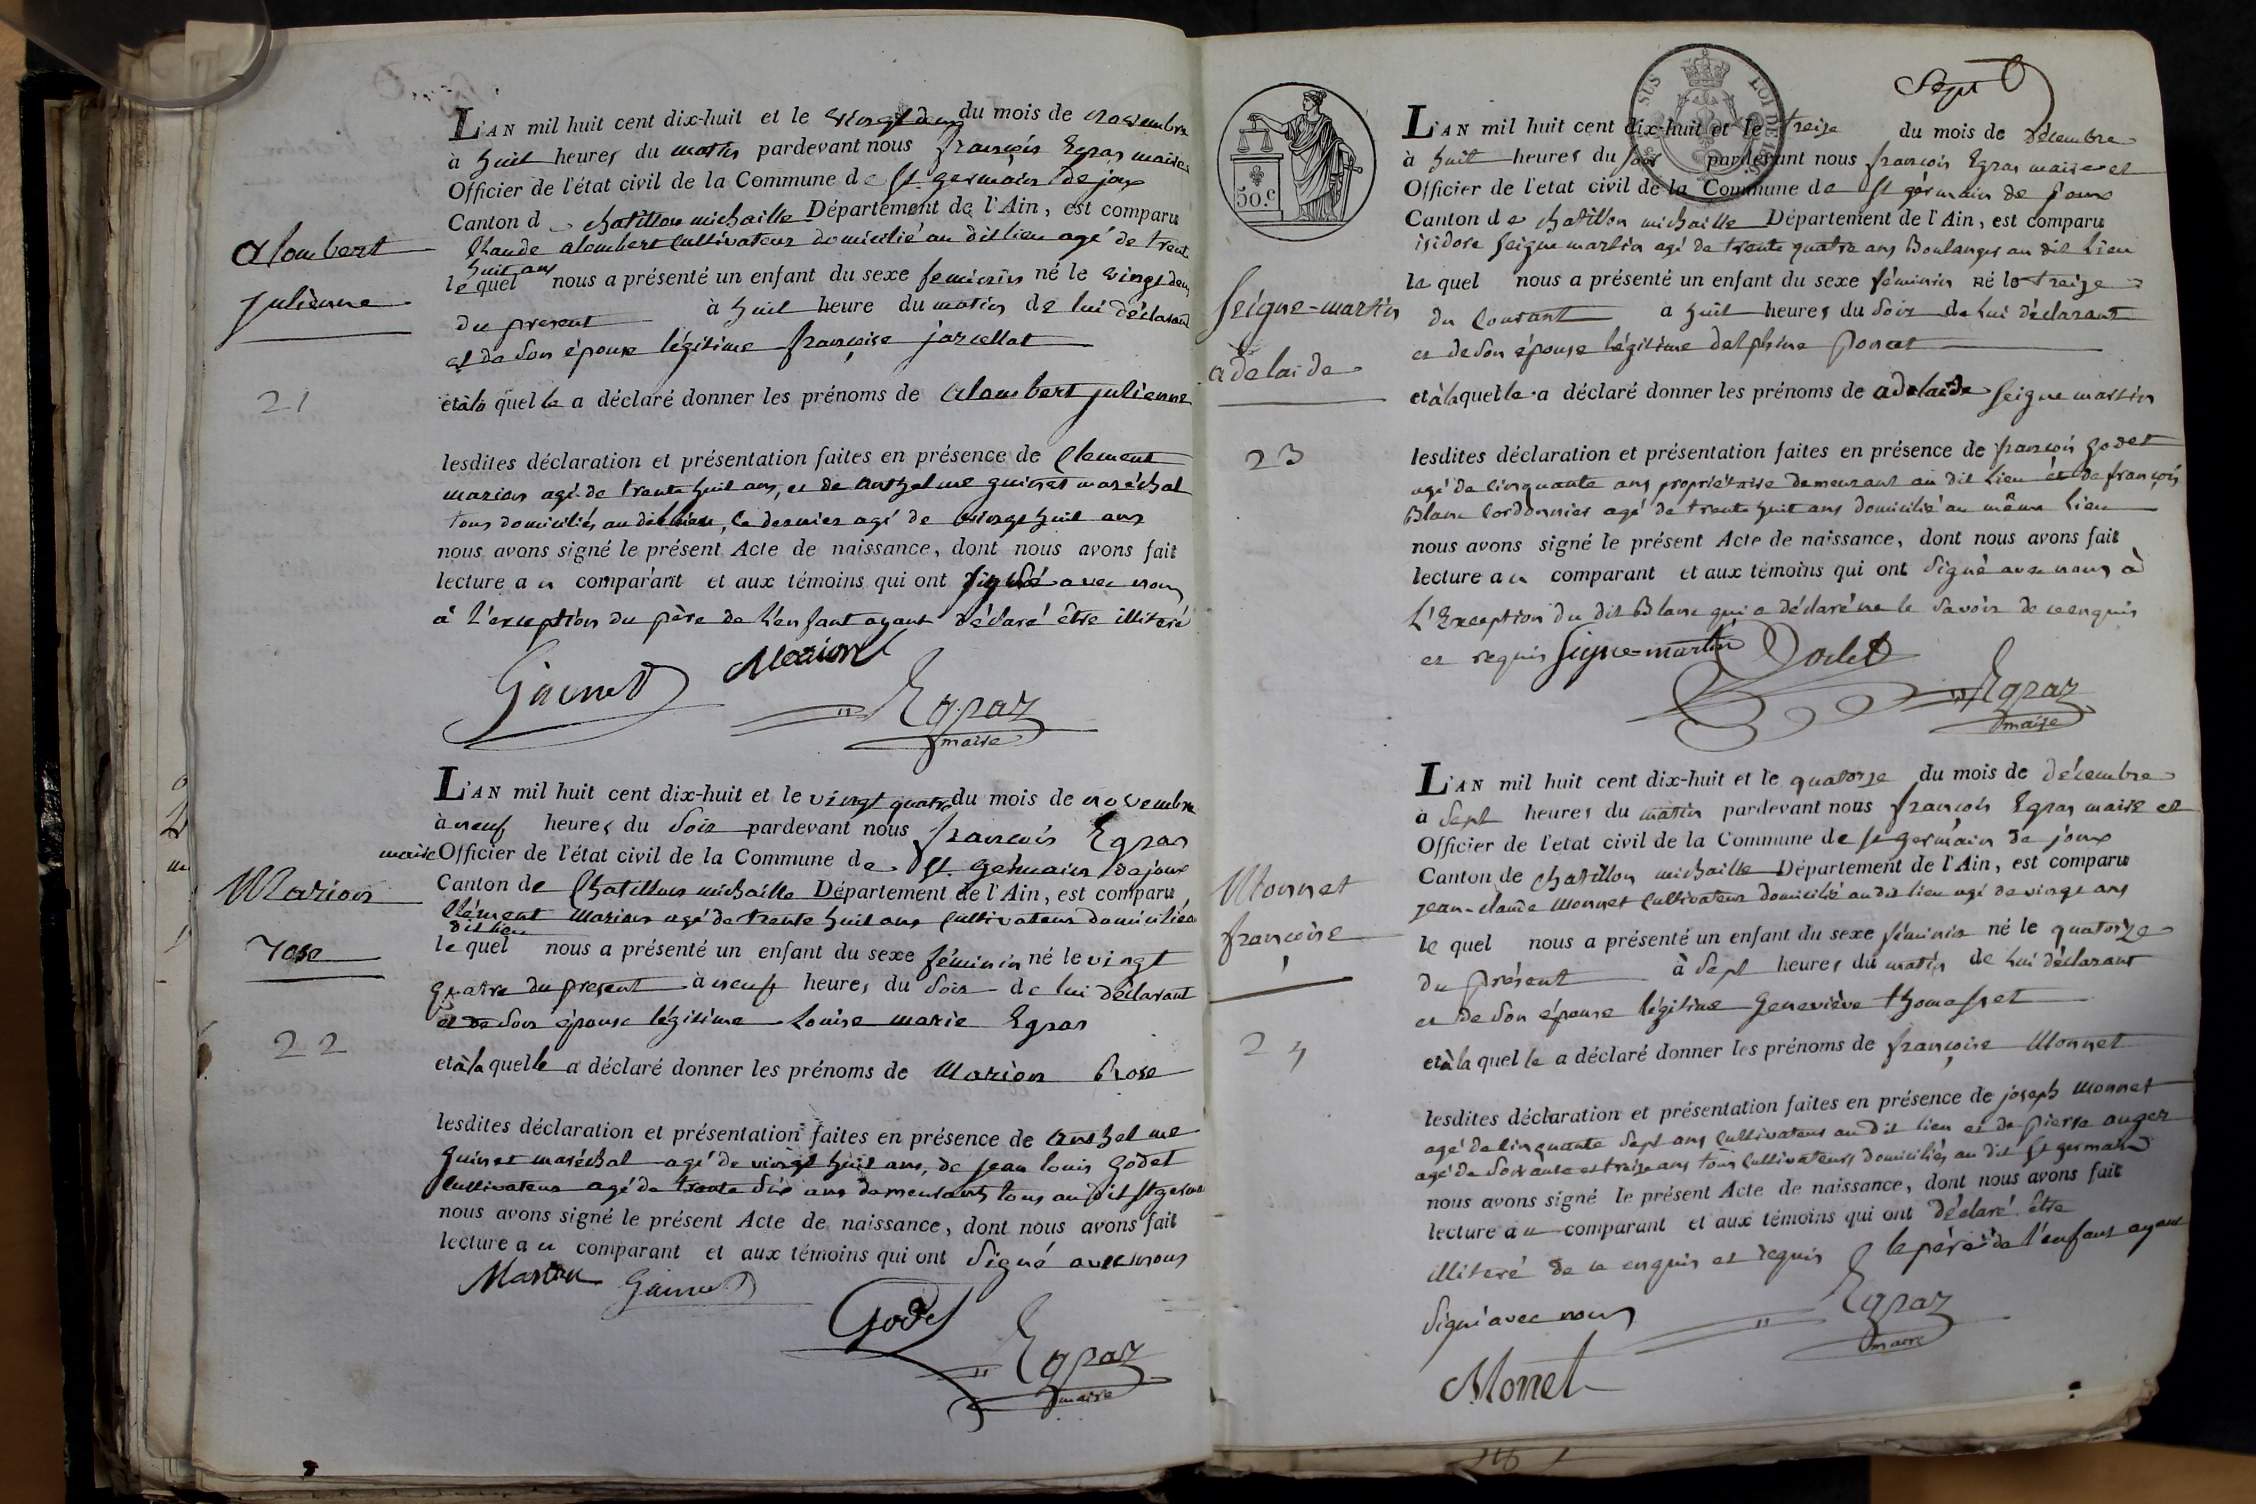 Alombert
Julienne
21
L'AN mil huit cent dix-huit et le vingt deux du mois de novembre
à huit heures du matin pardevant nous françois Egraz maire
Officier de l'état civil de la Commune de St germain de joux
Canton d chatillon michaille Département de l'Ain, est comparu
Claude alombert cultivateur domicilié au dit lieu agé de trente
huit ans
le quel nous a présenté un enfant du sexe feminin né le vingt deux
du present à huit heure du matin de lui déclarant
et de son épouse légitime françoise jarcellat
et à la quelle a déclaré donner les prénoms de alombert julienne
lesdites déclaration et présentation faites en présence de Clement
marion agé de trente huit ans, et de anthelme guinet maréchal
tous domiciliés au dit lieu, le dernier agé de vingt huit ans
nous avons signé le présent Acte de naissance, dont nous avons fait
lecture au comparant et aux témoins qui ont signé avec nous
à l'exception du père de l'enfant ayant déclaré être illiteré
Guinet Marion
Egraz
maire
Marion
rose
22
L'AN mil huit cent dix-huit et le vingt quatre du mois de novembre
à neuf heures du soir pardevant nous françois Egraz
maire Officier de l'état civil de la Commune de St. germain de joux
Canton de Chatillon michaille Département de l'Ain, est comparu
Clément Marion agé de trente huit ans cultivateur domicilié au
dit lieu
le quel nous a présenté un enfant du sexe féminin né le vingt
quatre du present à neuf heures du soir de lui déclarant
et de son épouse légitime Louise marie Egraz
et à la quelle a déclaré donner les prénoms de Marion Rose
lesdites déclaration et présentation faites en présence de anthelme
guinet maréchal agé de vingt huit ans, de jean louis godet
cultivateur agé de trente six ans demeurants tous au dit St germain
nous avons signé le présent Acte de naissance, dont nous avons fait
lecture au comparant et aux témoins qui ont signé avec nous
Marion Guinet
Godet
Egraz
maire
Sept
SUS LOI DE
50.c
Seigne-martin
adelaide
23
L'AN mil huit cent dix-huit et le treize du mois de décembre
à huit heures du soir pardevant nous françois Egraz maire et
Officier de l'etat civil de la Commune de St germain de joux
Canton de chatillon michaille Département de l'Ain, est comparu
isidore seigne martin agé de trente quatre ans Boulanger au dit lieu
le quel nous a présenté un enfant du sexe féminin né le treize
du courant à huit heures du soir de lui déclarant
et de son épouse légitime delphine poncet
et à la quelle a déclaré donner les prénoms de adelaide seigne martin
lesdites déclaration et présentation faites en présence de françois godet
agé de cinquante ans propriétaire demeurant au dit lieu et de françois
Blanc cordonnier agé de trente huit ans domicilié au même lieu
nous avons signé le présent Acte de naissance, dont nous avons fait
lecture au comparant et aux témoins qui ont signé avec nous à
l'Exception du dit Blanc qui a déclaré ne le savoir de ce enquis
et requis Seigne-martin Godet
Egraz
maire
Monnet
françoise
24
L'AN mil huit cent dix-huit et le quatorze du mois de décembre
à sept heures du matin pardevant nous françois Egraz maire et
Officier de l'etat civil de la Commune de St germain de joux
Canton de chatillon michaille Département de l'Ain, est comparu
jean-claude Monnet cultivateur domicilié au dit lieu agé de vingt ans
le quel nous a présenté un enfant du sexe féminin né le quatorze
du présent à sept heures du matin de lui déclarant
et de son épouse légitime Geneviève thomasset
et à la quelle a déclaré donner les prénoms de françoise Monnet
lesdites déclaration et présentation faites en présence de joseph Monnet
agé de cinquante sept ans cultivateur au dit lieu et de pierre auger
agé de soixante et treize ans tous cultivateurs domiciliés au dit St germain
nous avons signé le présent Acte de naissance, dont nous avons fait
lecture au comparant et aux témoins qui ont déclaré être
illiteré de ce enquis et requis le père de l'enfant ayant
signé avec nous
Egraz
maire
Monnet